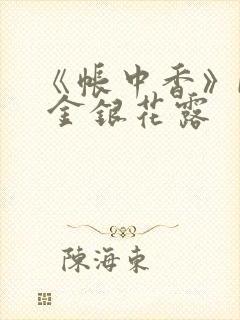 《帳中香》
金銀花露
陳海東